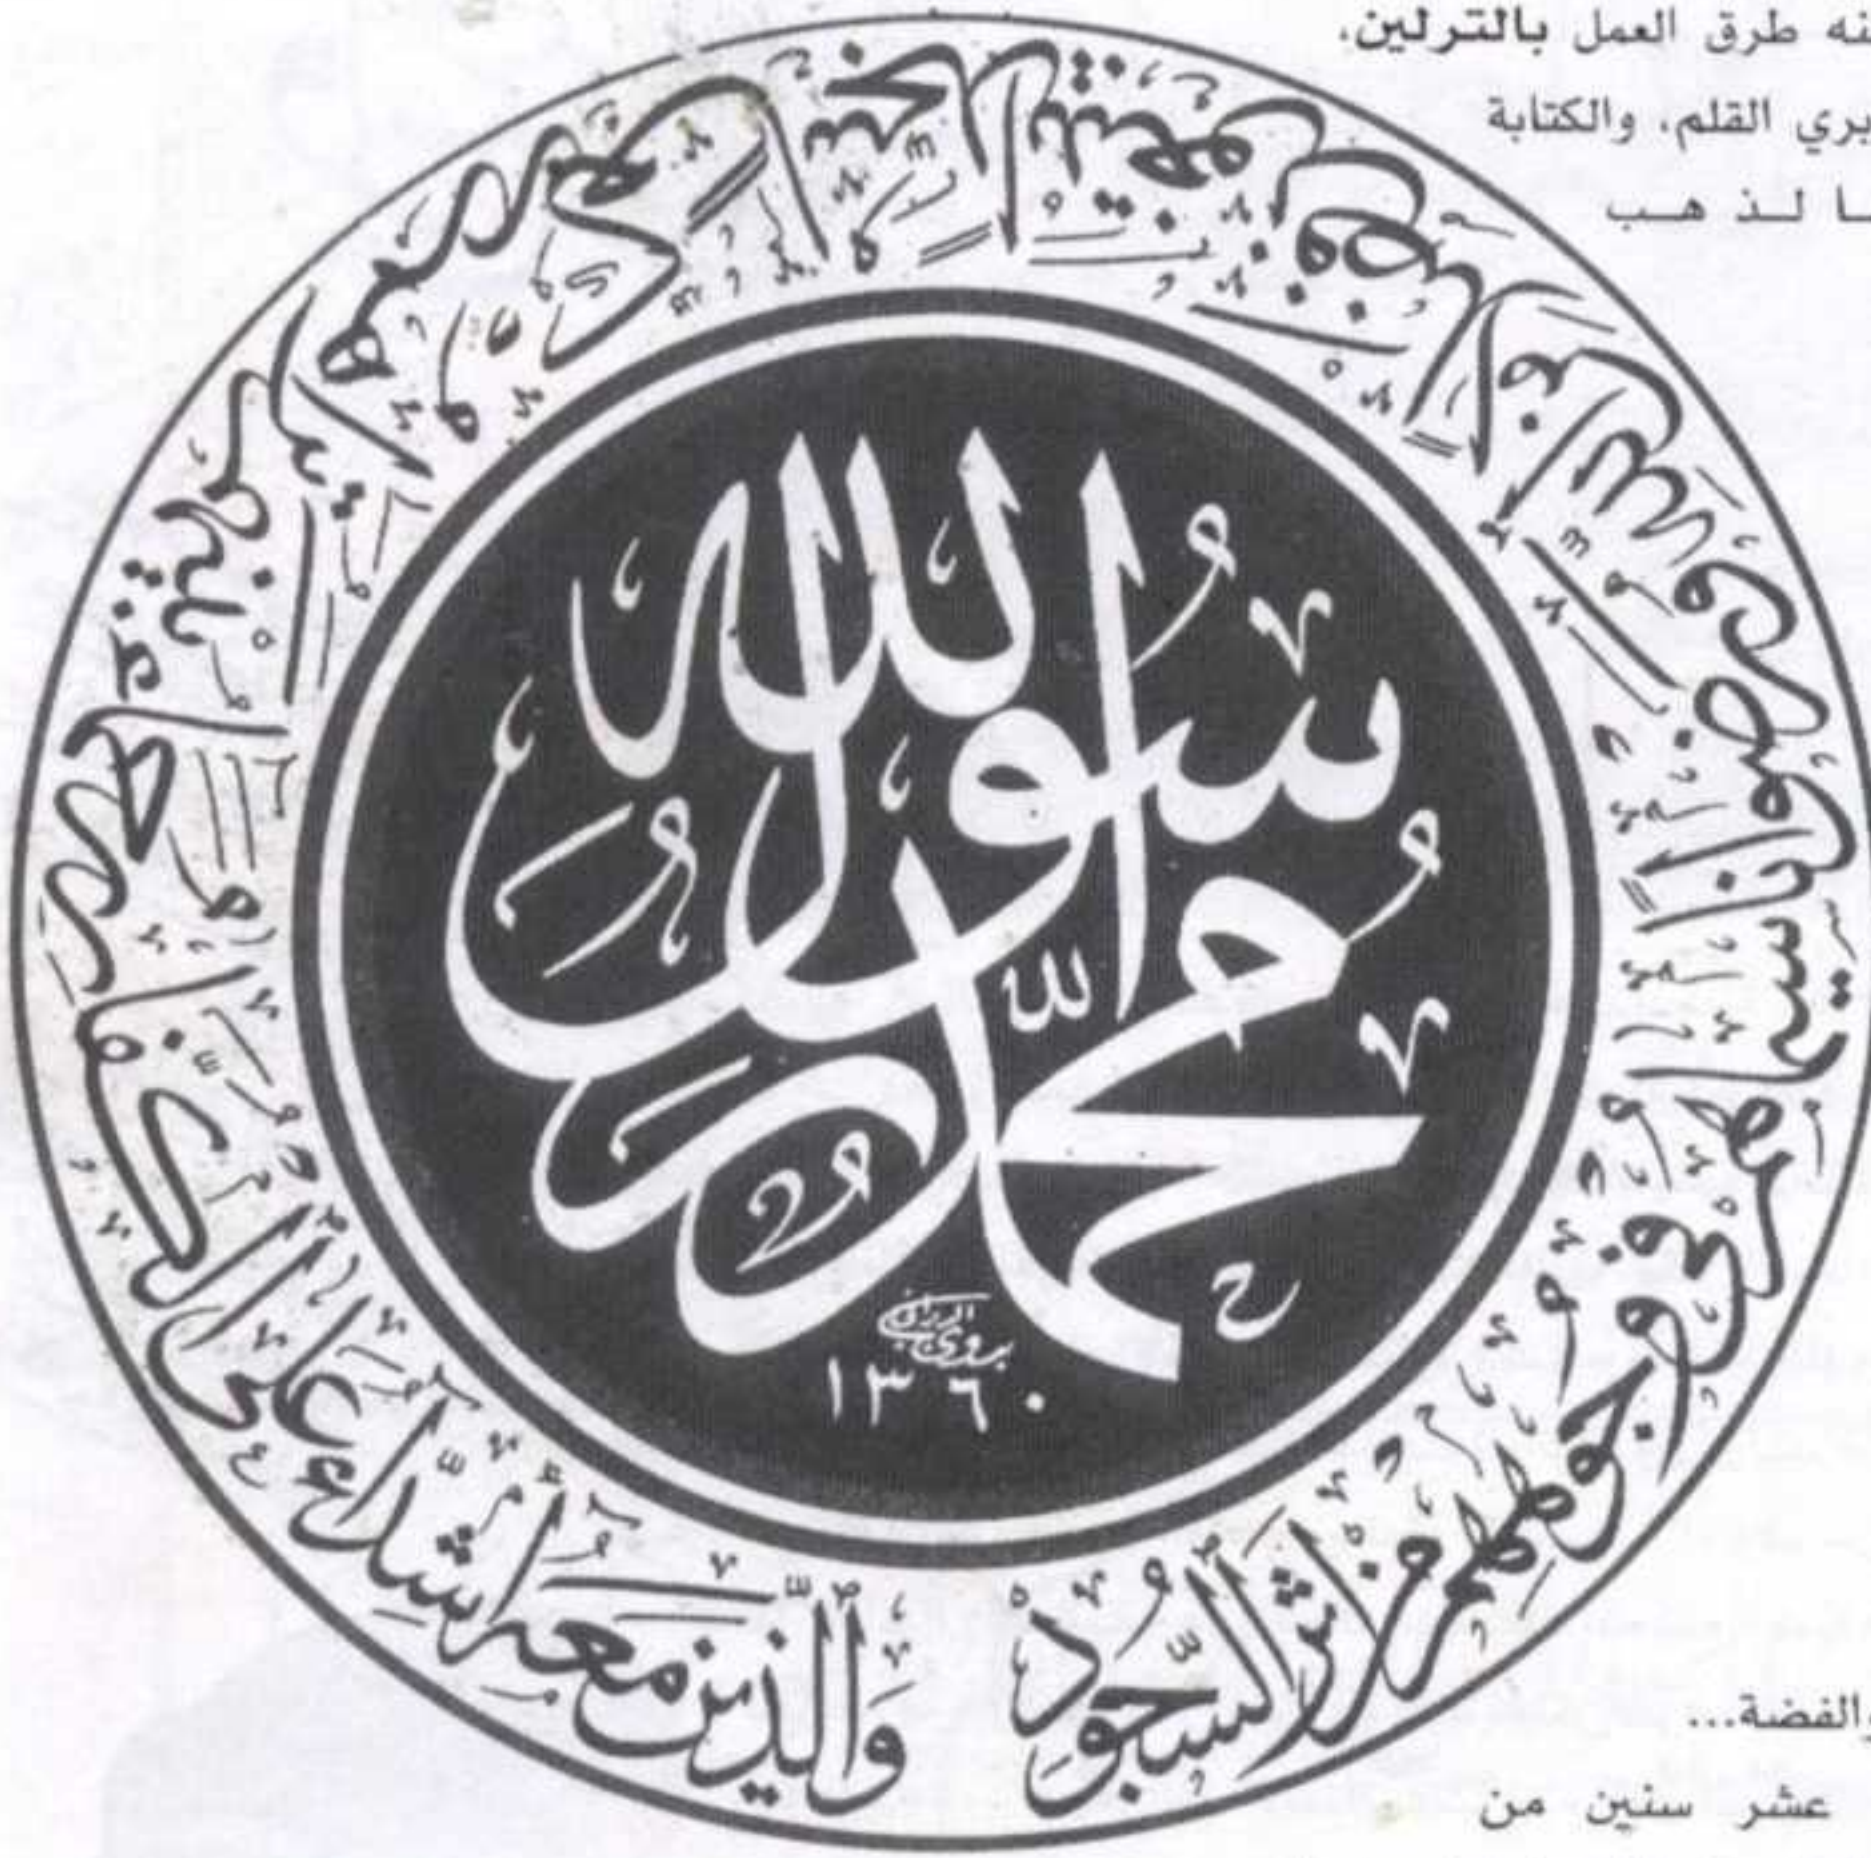 نه طرق العمل بالترلين،
بري القلم، والكتابة
ـا لـذ هـب
محمد رسول الله
والذين معه أشداء على الكفار رحماء بينهم تراهم ركعا سجدا يبتغون فضلا من الله ورضوانا سيماهم في وجوههم من أثر السجود
بدوي الديراني
١٣٦٠
والفضة...
عشر سنين من